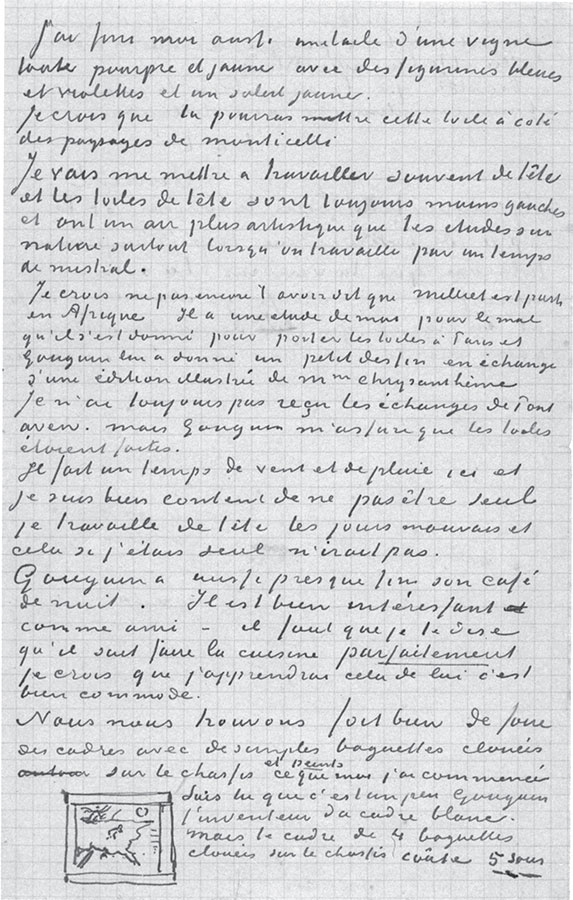 J'ai fini moi aussi une toile d'une vigne
toute pourpre et jaune avec des figurines bleues
et violettes et un soleil jaune.
Je crois que tu pourras mettre cette toile à coté
des paysages de monticelli
Je vais me mettre a travailler souvent de tête
et les toiles de tête sont toujours moins gauches
et ont un air plus artistique que les etudes sur
nature surtout lorsqu'on travaille par un temps
de mistral.
Je crois ne pas encore t'avoir dit que Milliet est parti
en Afrique Il a une etude de moi pour le mal
qu'il s'est donné pour porter les toiles à Paris et
Gauguin lui a donné un petit dessin en échange
d'une édition illustrée de Mme Chrysanthème
Je n'ai toujours pas reçu les échanges de Pont
aven. mais Gauguin m'assure que les toiles
étaient faites.
Il fait un temps de vent et de pluie ici et
je suis bien content de ne pas être seul
je travaille de tête les jours mauvais et
cela si j'étais seul n'irait pas.
Gauguin a aussi presque fini son café
de nuit. Il est bien intéressant
comme ami – il faut que je te dise
qu'il sait faire la cuisine parfaitement
je crois que j'apprendrai cela de lui c'est
bien commode.
Nous nous trouvons fort bien de faire
des cadres avec de simples baguettes clouées
sur le chassis et peints ce que moi j'ai commencé
Sais tu que c'est un peu Gauguin
l'inventeur du cadre blanc.
mais le cadre de 4 baguettes
clouées sur le chassis coûte 5 sous